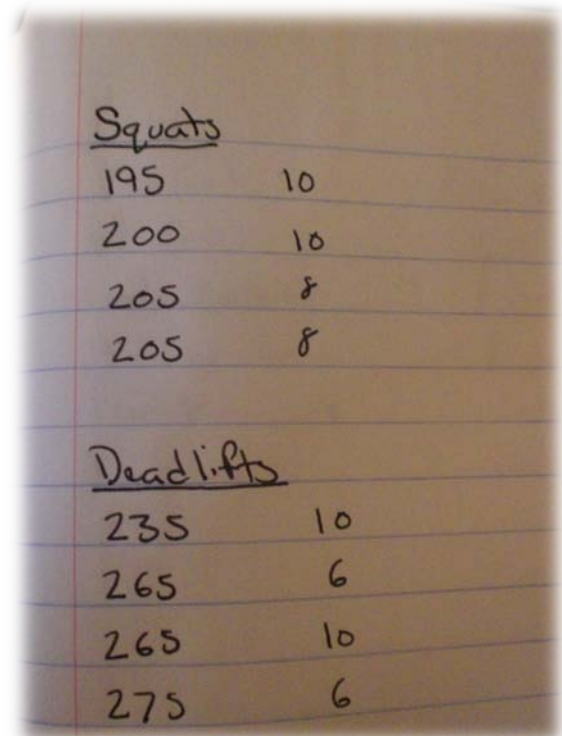 Squats
195 10
200 10
205 8
205 8
Deadlifts
235 10
265 6
265 10
275 6